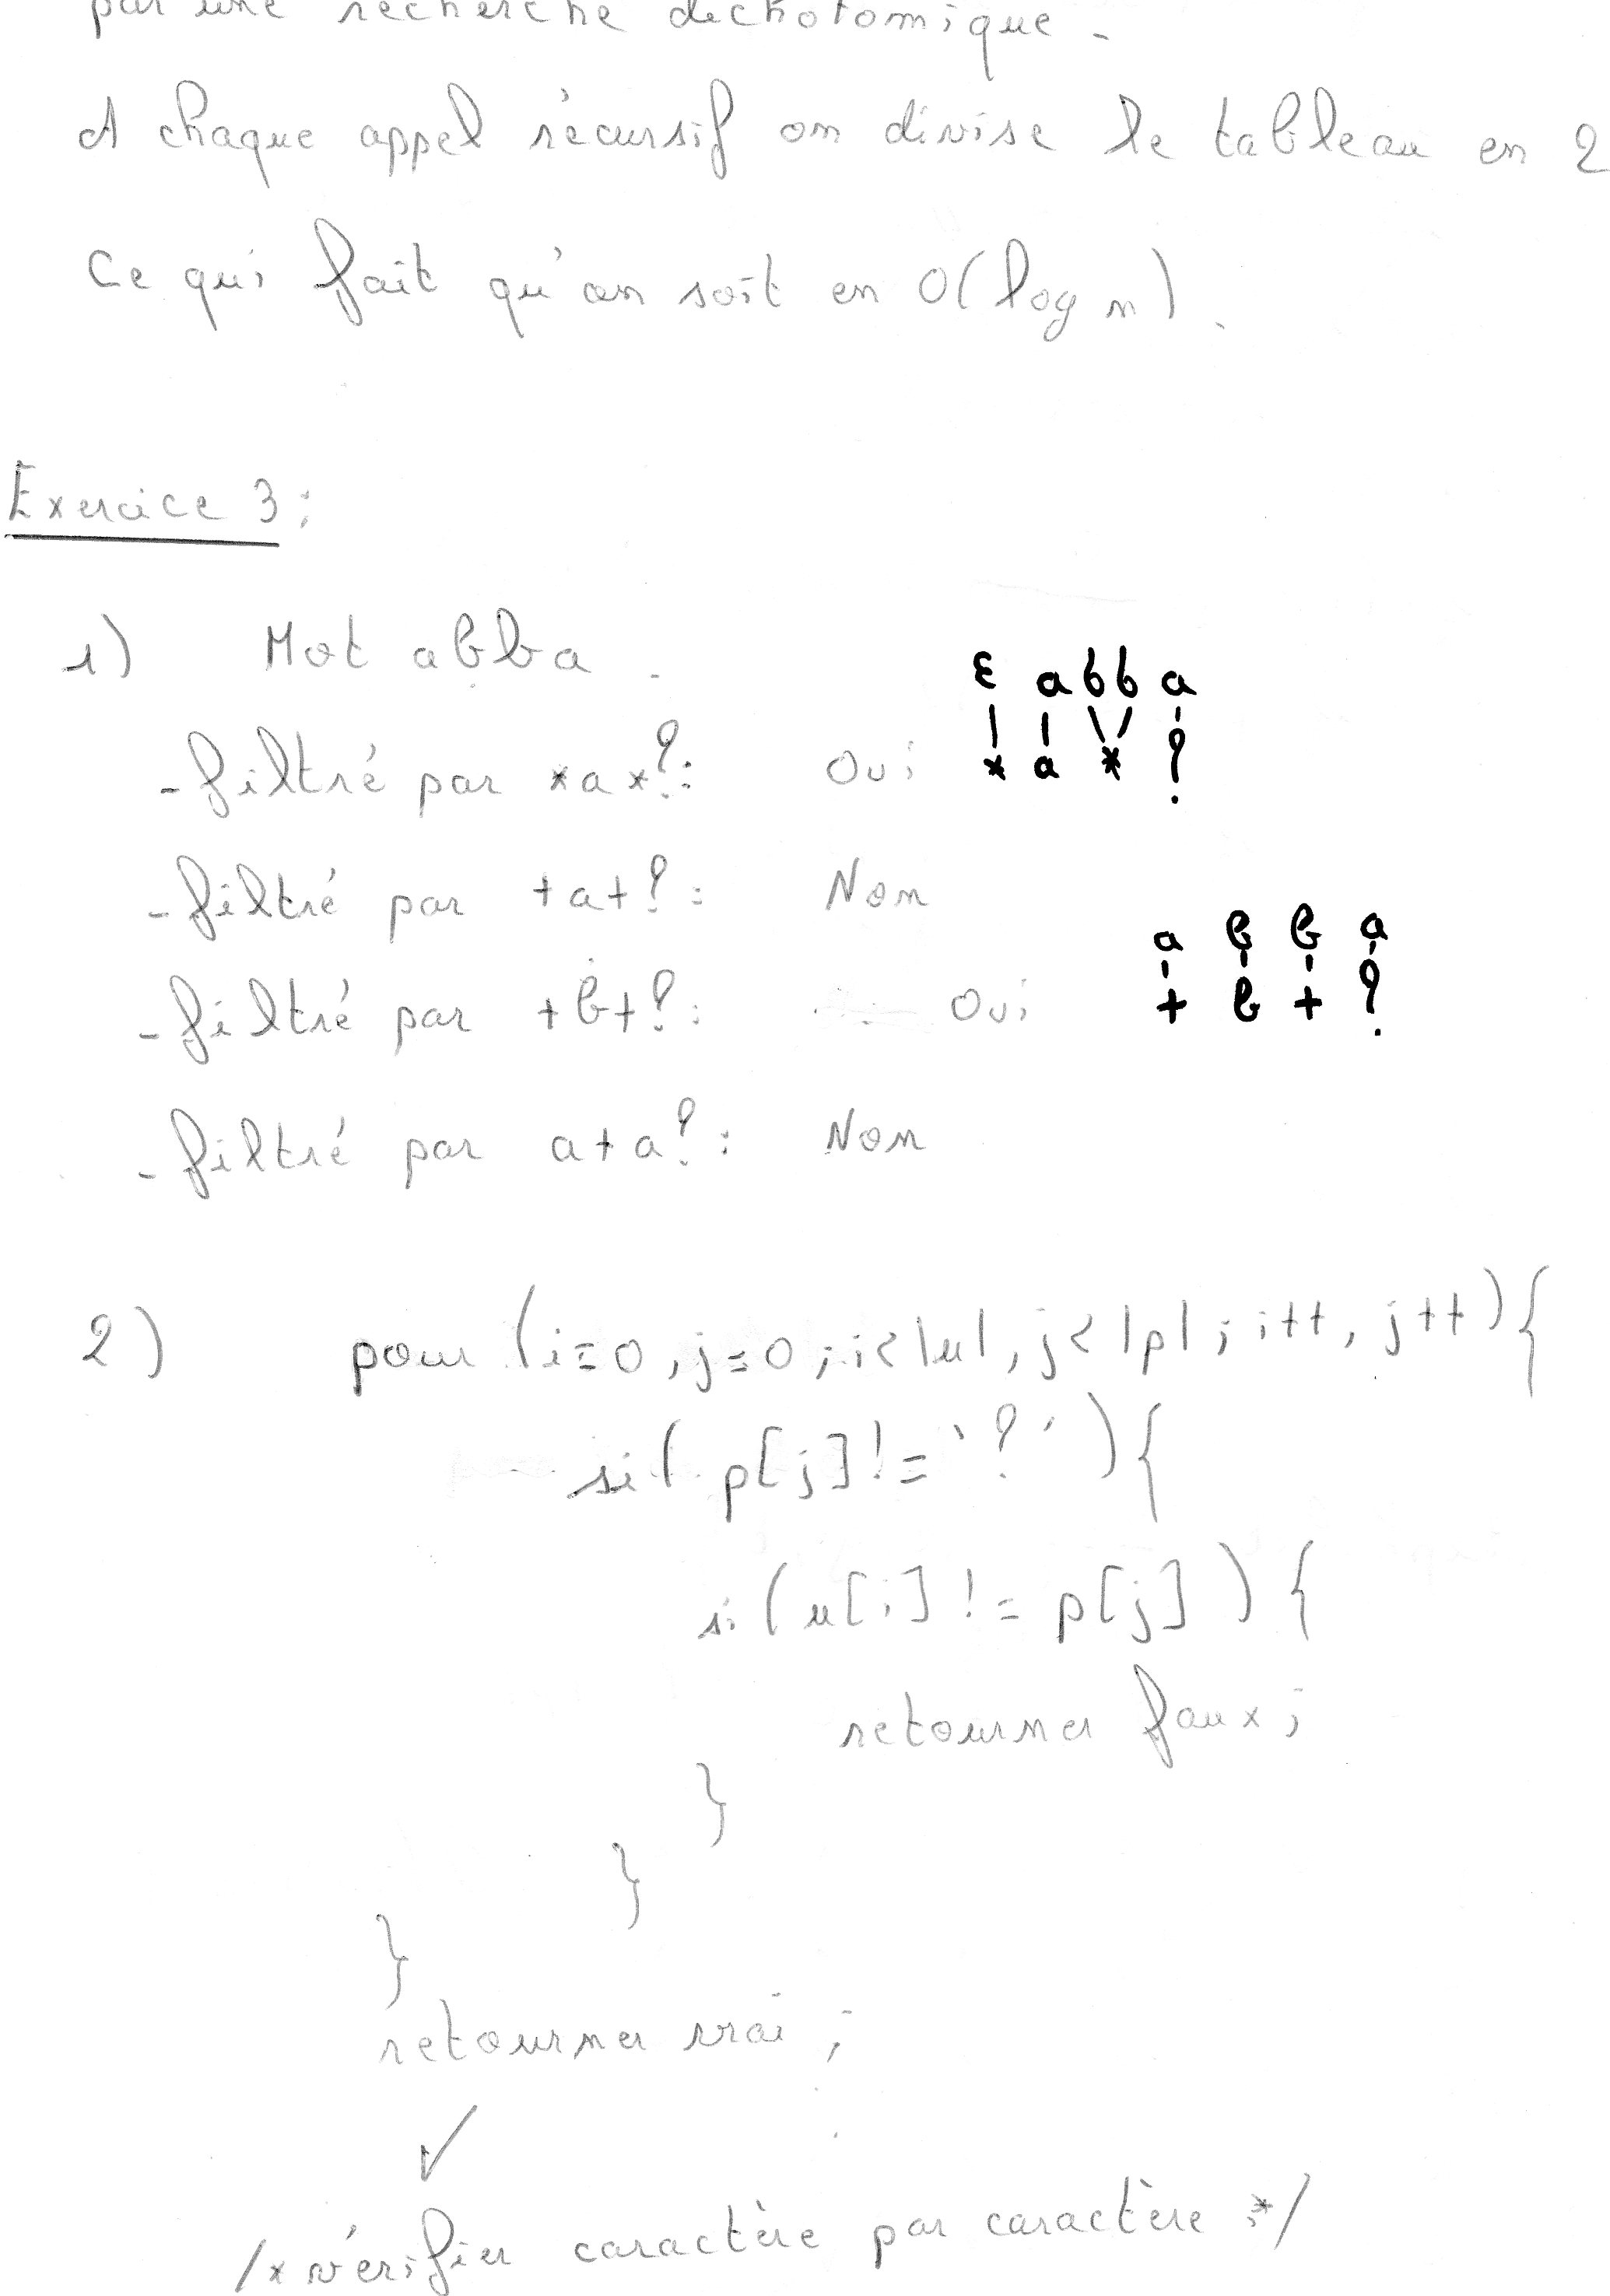 par une recherche dichotomique.
A chaque appel récursif on divise le tableau en 2
Ce qui fait qu'on soit en O(log n).
Exercice 3:
1) Mot abba.
ε a b b a
- filtré par *a*?: Oui * a * ?
- filtré par +a+?: Non
a b b a
- filtré par +b+?: Oui + b + ?
- filtré par a+a?: Non
2) pour (i=0, j=0; i<|u|, j<|p|; i++, j++){
si( p[j]!='?'){
si(u[i] != p[j]) {
retourner faux;
}
}
}
retourner vrai;
✓
/* vérifier caractère par caractère */